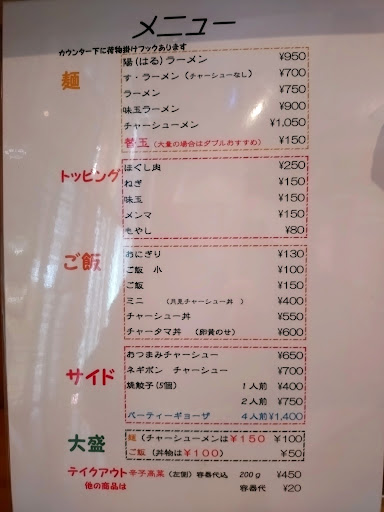 メニュー
カウンター下に荷物掛けフックあります
麺
陽(はる)ラーメン ¥950
す・ラーメン(チャーシューなし) ¥700
ラーメン ¥750
味玉ラーメン ¥900
チャーシューメン ¥1,050
替玉(大盛の場合はダブルおすすめ) ¥150
トッピング
ほぐし肉 ¥250
ねぎ ¥150
味玉 ¥150
メンマ ¥150
もやし ¥80
ご飯
おにぎり ¥130
ご飯 小 ¥100
ご飯 ¥150
ミニ (月見チャーシュー丼 ) ¥400
チャーシュー丼 ¥550
チャータマ丼 (卵黄のせ) ¥600
サイド
おつまみチャーシュー ¥650
ネギポン チャーシュー ¥700
焼餃子(5個) 1人前 ¥400
2人前 ¥750
パーティーギョーザ 4人前¥1,400
大盛
麺(チャーシューメンは¥150 ¥100
ご飯(丼物は¥100) ¥50
テイクアウト辛子高菜(左側)容器代込 200g ¥450
他の商品は 容器代 ¥20